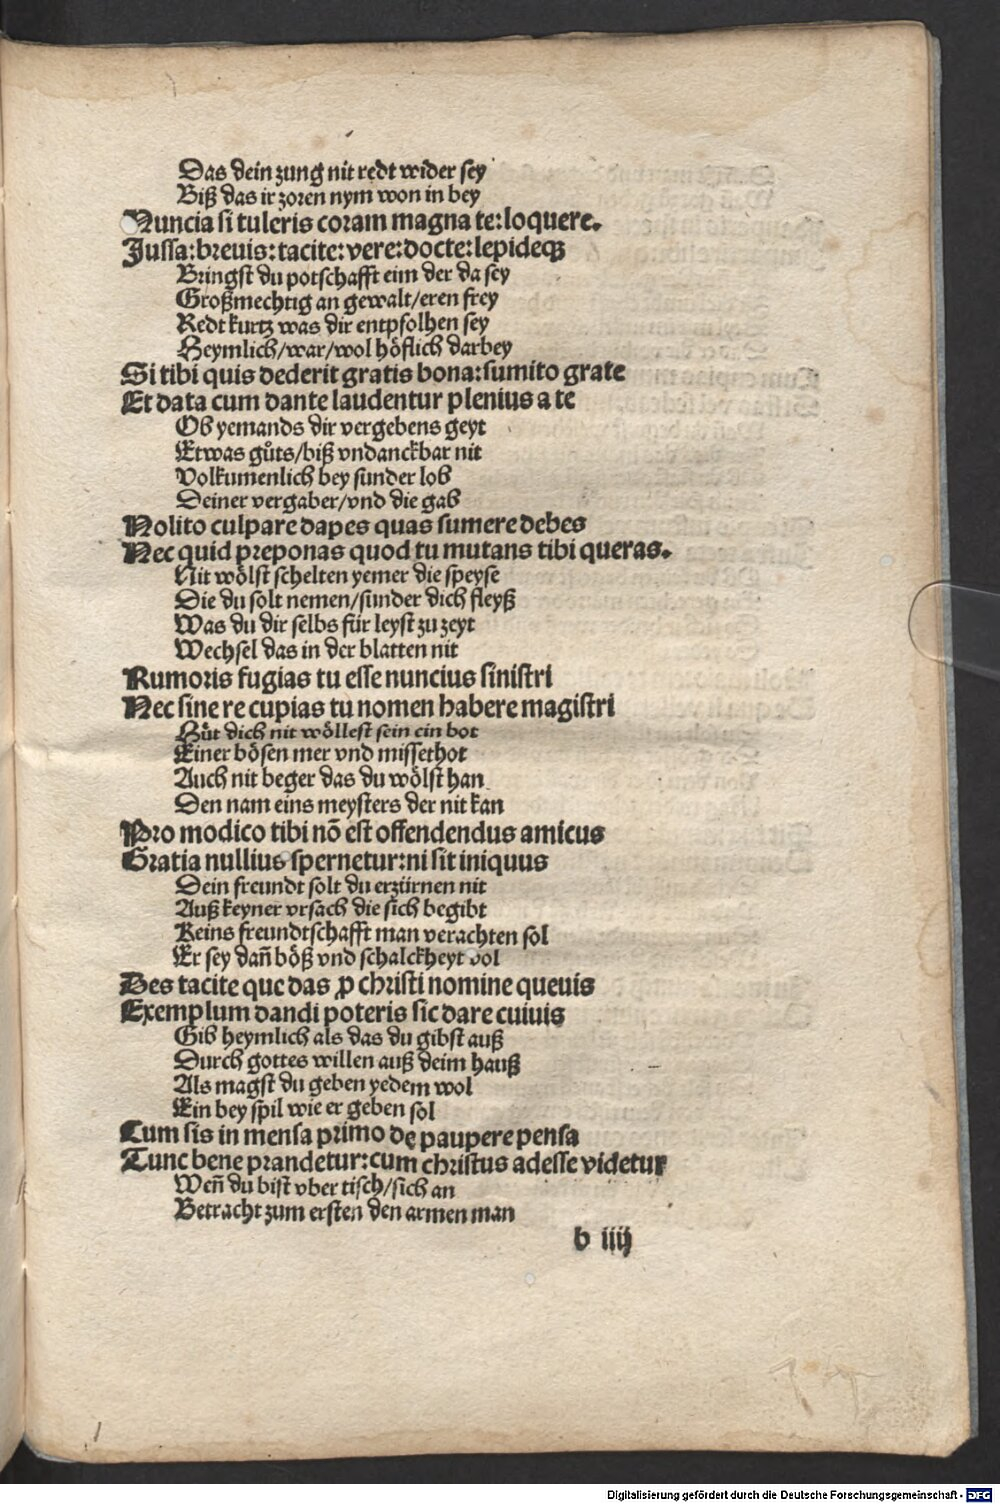 Das dein zung nit redt wider sey
Biß das ir zoren nym won in bey
Nuncia si tuleris coram magna te: loquere.
Jussa: breuis: tacite: vere: docte: lepideqꝫ
Bringst du potschafft eim der da sey
Großmechtig an gewalt/eren frey
Redt kurtz was dir entpfolhen sey
Heymlich/war/wol höflich darbey
Si tibi quis dederit gratis bona: sumito grate
Et data cum dante laudentur plenius a te
Ob yemands dir vergebens geyt
Etwas gůts/biß vndanckbar nit
Volkumenlich bey sunder lob
Deiner vergaber/vnd die gab
Nolito culpare dapes quas sumere debes
Nec quid preponas quod tu mutans tibi queras.
Nit wölst schelten yemer die speyse
Die du solt nemen/sunder dich fleyß
Was du dir selbs für leyst zu zeyt
Wechsel das in der blatten nit
Rumoris fugias tu esse nuncius sinistri
Nec sine re cupias tu nomen habere magistri
Hůt dich nit wöllest sein ein bot
Einer bösen mer vnd missethot
Auch nit beger das du wölst han
Den nam eins meysters der nit kan
Pro modico tibi nō est offendendus amicus
Gratia nullius spernetur: ni sit iniquus
Dein freundt solt du erzürnen nit
Auß keyner vrsach die sich begibt
Keins freundtschafft man verachten sol
Er sey dan̄ böß vnd schalckheyt vol
Des tacite que das ꝓ christi nomine queuis
Exemplum dandi poteris sic dare cuiuis
Gib heymlich als das du gibst auß
Durch gottes willen auß deim hauß
Als magst du geben yedem wol
Ein bey spil wie er geben sol
Cum sis in mensa primo dę paupere pensa
Tunc bene prandetur: cum christus adesse videtur
Wen̄ du bist vber tisch/sich an
Betracht zum ersten den armen man
b iiij
Digitalisierung gefördert durch die Deutsche Forschungsgemeinschaft - DFG